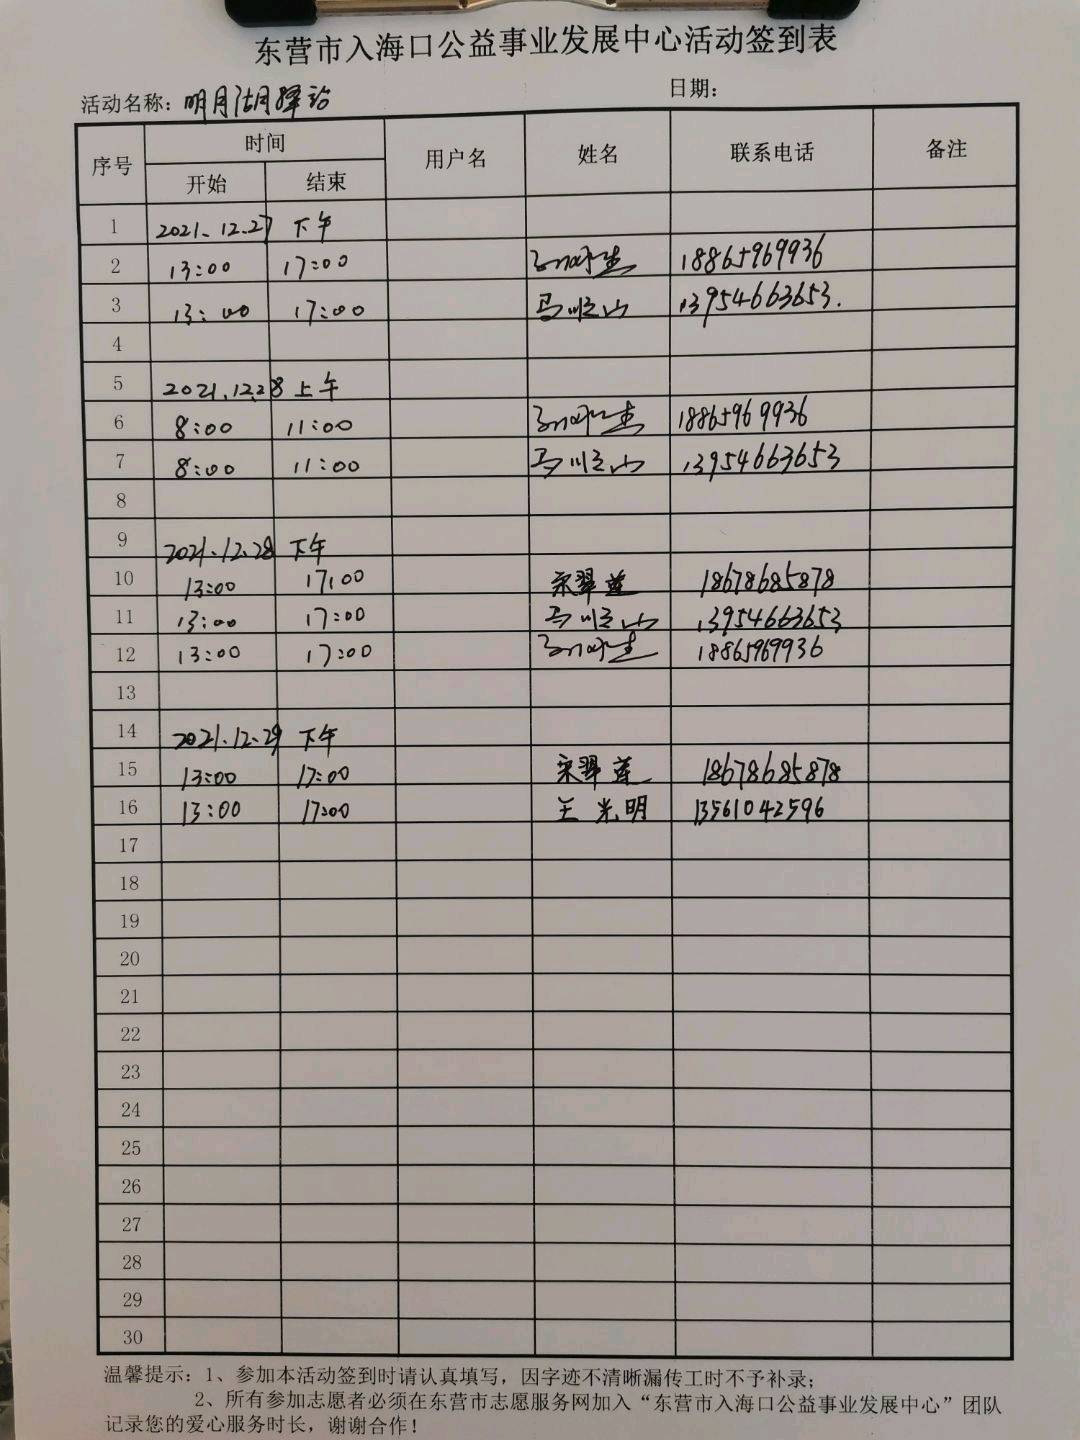 东营市入海口公益事业发展中心活动签到表
活动名称: 明月湖驿站 日期:
序号 时间 用户名 姓名 联系电话 备注
开始 结束
1 2021.12.27 下午
2 13:00 17:00 18865969936
3 13:00 17:00 马顺山 13954663653.
4
5 2021.12.28 上午
6 8:00 11:00 18865969936
7 8:00 11:00 马顺山 13954663653
8
9 2021.12.28 下午
10 13:00 17:00 宋翠莲 18678685878
11 13:00 17:00 马顺山 13954663653
12 13:00 17:00 18865969936
13
14 2021.12.29 下午
15 13:00 17:00 宋翠莲 18678685878
16 13:00 17:00 王光明 13561042596
17
18
19
20
21
22
23
24
25
26
27
28
29
30
温馨提示: 1、参加本活动签到时请认真填写，因字迹不清晰漏传工时不予补录;
2、所有参加志愿者必须在东营市志愿服务网加入“东营市入海口公益事业发展中心”团队
记录您的爱心服务时长，谢谢合作!